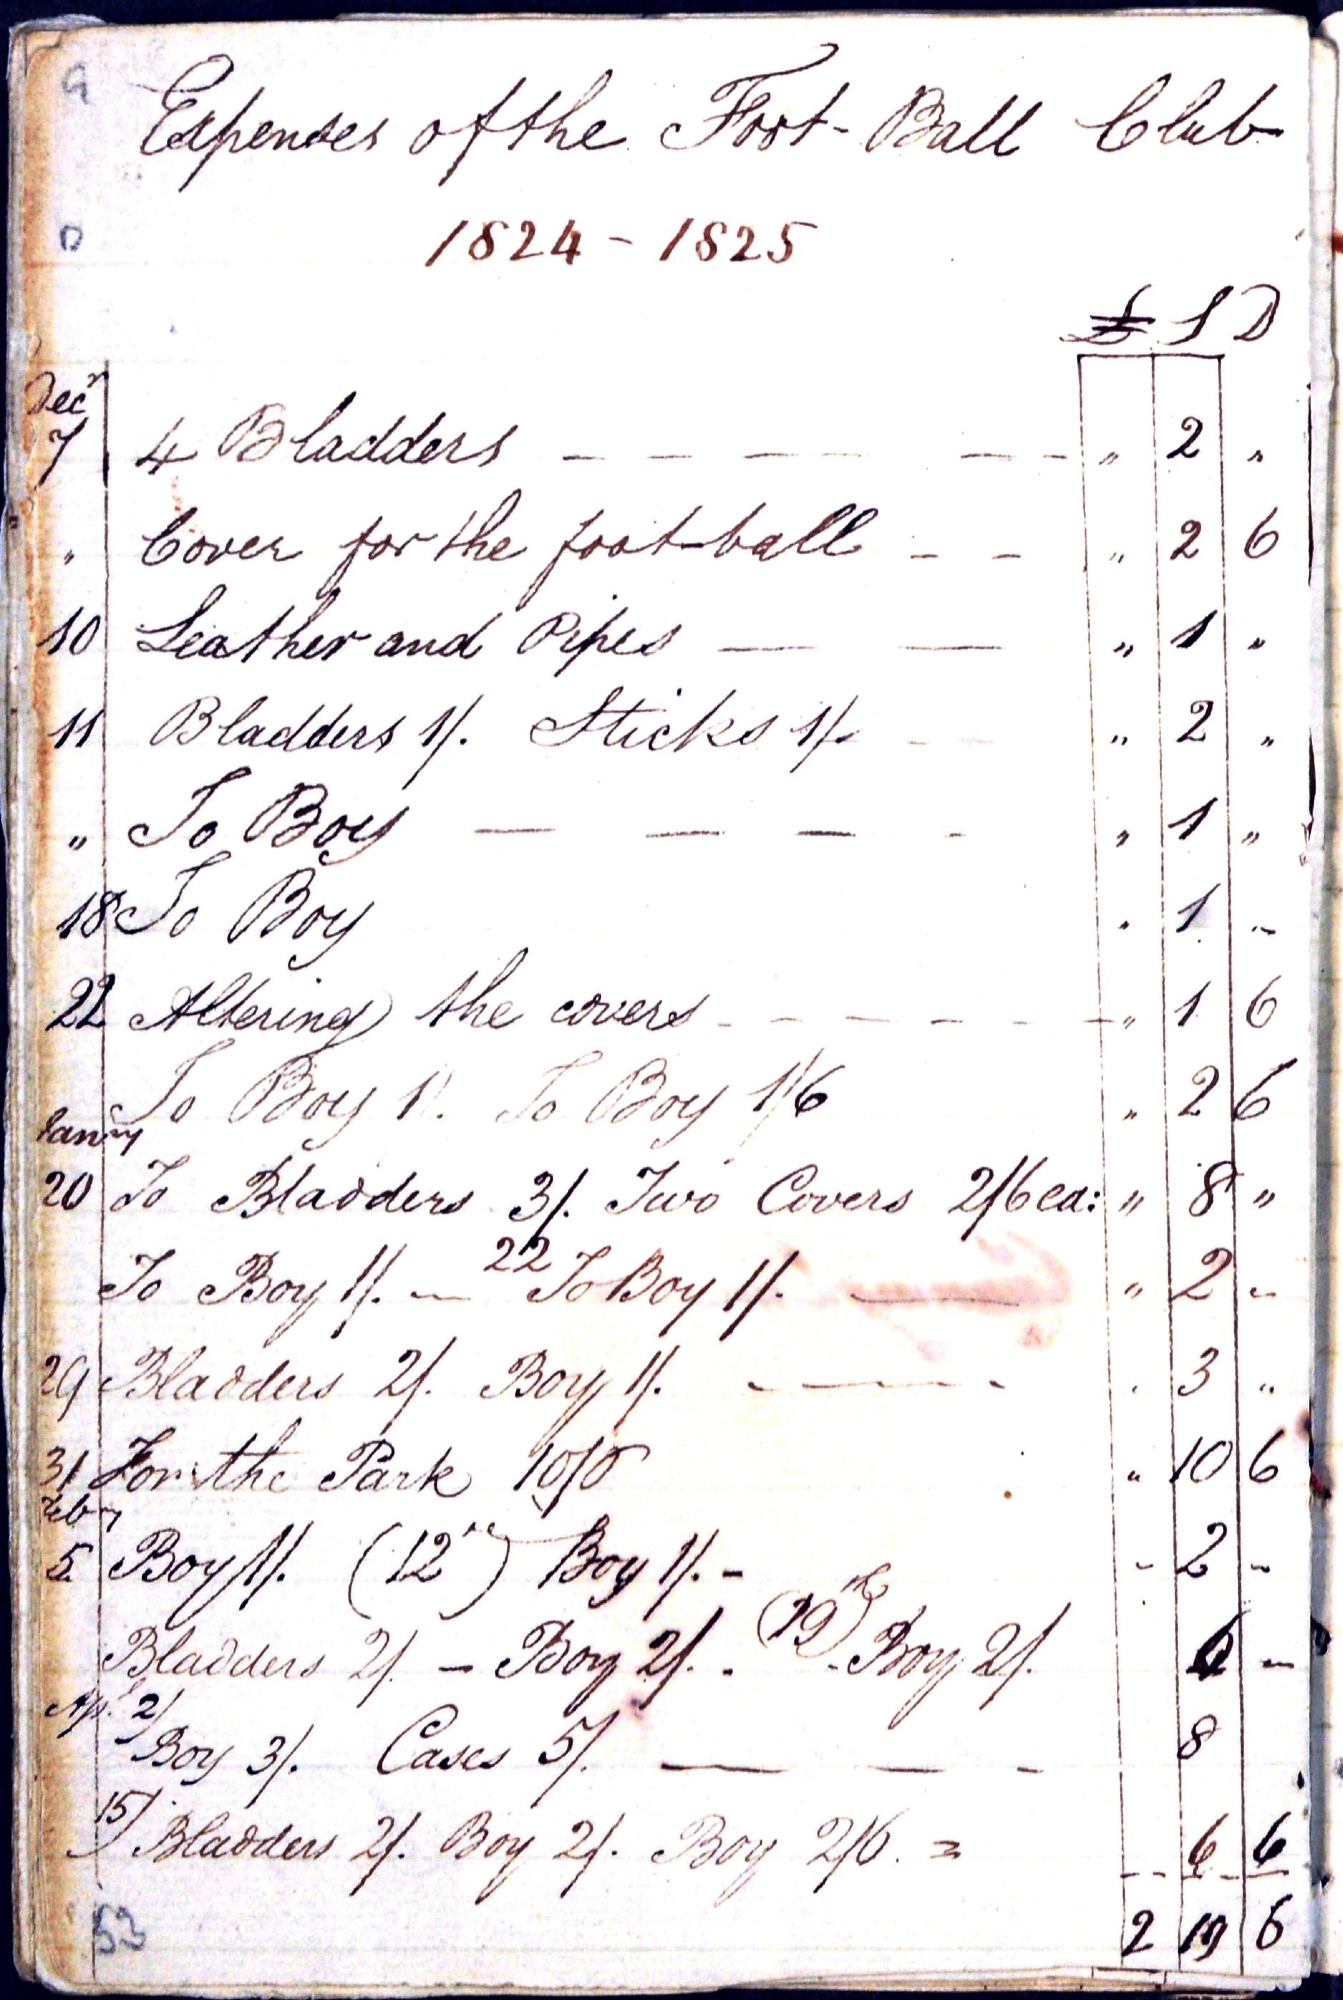 Expenses of the Foot-Ball Club
1824 - 1825
£ S D
Decr
7 4 Bladders — — — — — — „ 2 „
„ Cover for the foot-ball — — „ 2 6
10 Leather and Pipes — — „ 1 „
11 Bladders 1/. Sticks 1/. — — „ 2 „
„ To Boy — — — - „ 1 „
18 To Boy „ 1 „
22 Altering the covers - - - - - - „ 1 6
To Boy 1/. To Boy 1/6 „ 2 6
Janry
20 To Bladders 3/. Two Covers 2/6 ea: „ 8 „
To Boy 1/. — 22 To Boy 1/. — „ 2 „
29 Bladders 2/. Boy 1/. — „ 3 „
31 For the Park 10/6 „ 10 6
Feby
5 Boy 1/. (12th) Boy 1/. - - 2 -
Bladders 2/. — Boy 2/. - (19th) - Boy 2/. 6 -
Apl. 2/ Boy 3/. Cases 5/. — — - 8
15/ Bladders 2/. Boy 2/. Boy 2/6. = 6 6
53 2 19 6